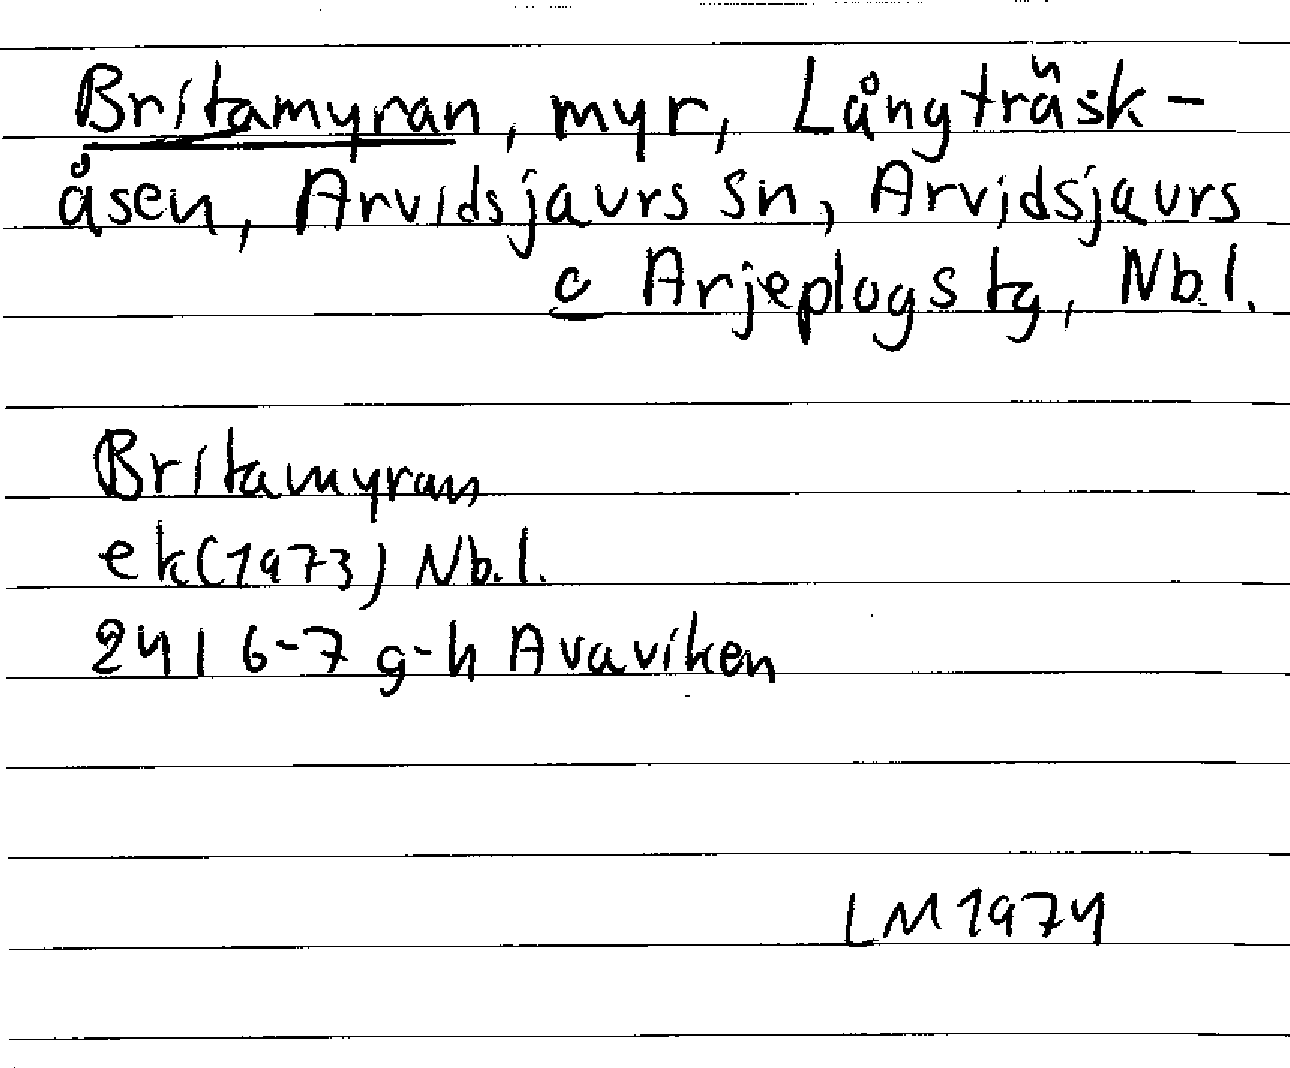 Britamyran, myr, Långträsk-
åsen, Arvidsjaurs sn, Arvidsjaurs
o Arjeplogs tg, Nb.l.
Britamyran
ek(1973) Nb.l.
24I 6-7 g-h Avaviken
LM 1974